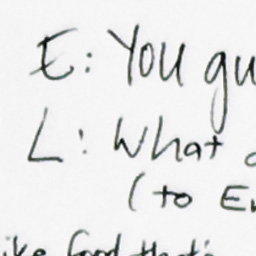 E: You gu
L: What
(to Er
ike food that's